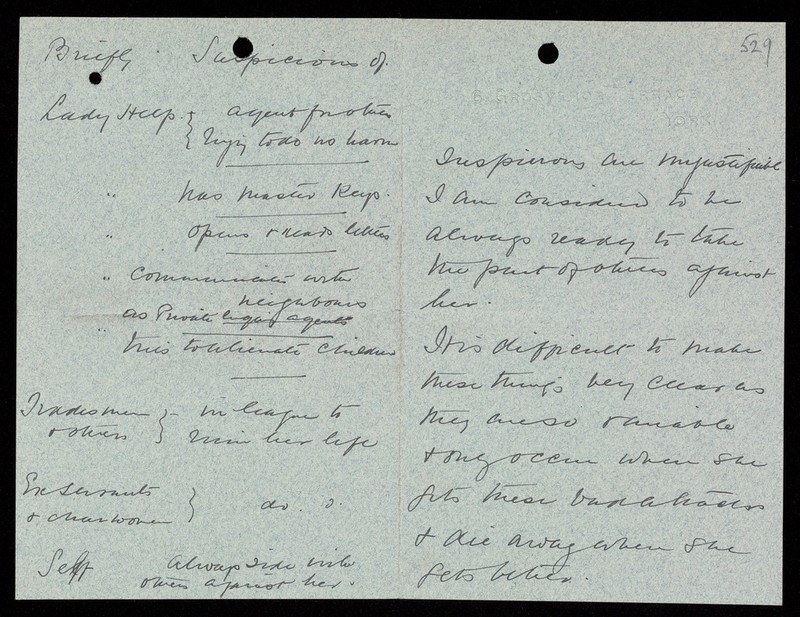 Briefly. Suspicions of.
Lady Help - agent for others
trying to do no harm
" has master keys.
" opens & reads letters
" communicates with
neighbours
as Private enquiry agents
" tries to alienate children
Tradesmen - in league to
& others } ruin her life
Ex Servants
& charwomen } do. o.
Self always side with
others against her.
529
Suspicions are unjustifiable
I am considered to be
always ready to take
the part of others against
her.
It is difficult to make
these things very clear as
they are so variable
& only occur when she
gets these bad attacks
& die away when she
gets better.